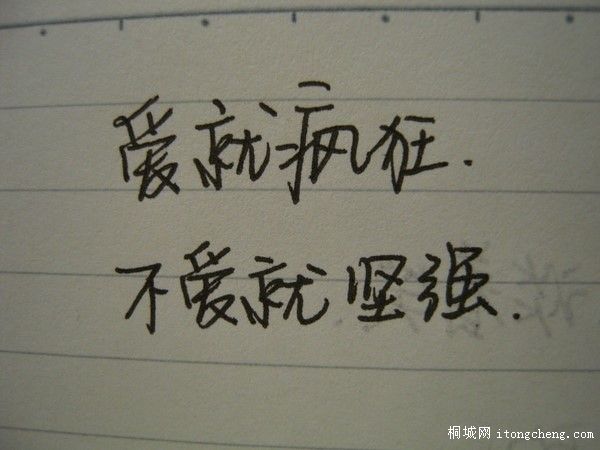 爱就疯狂.
不爱就坚强.
桐城网 itongcheng.com